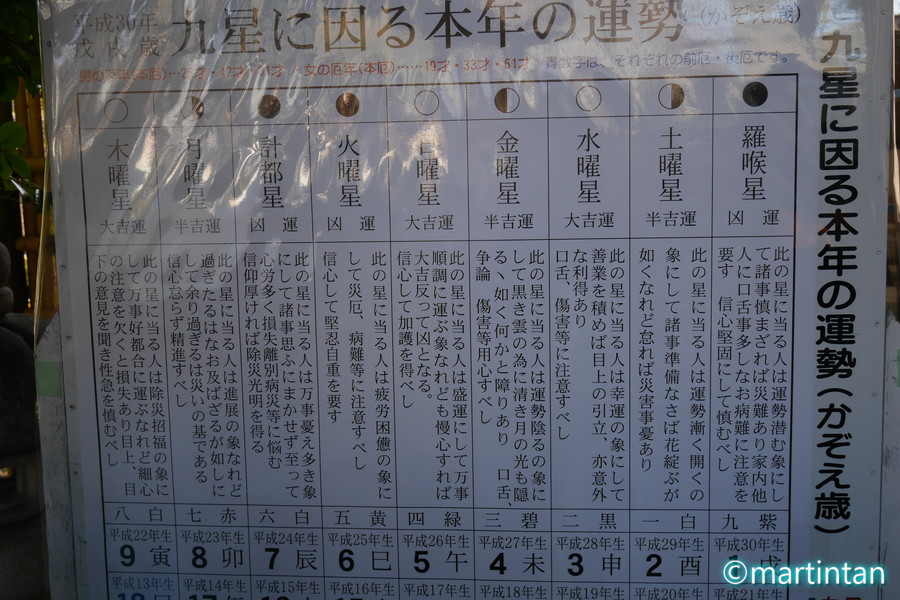 平成30年
戊戌歳
九星に因る本年の運勢(かぞえ歳)
九星に因る本年の運勢(かぞえ歳)
女の厄年(本厄)……19才・33才・61才
青数字は、それぞれの前厄・後厄です。
羅喉星
凶運
此の星に当る人は運勢潜む象にし
て諸事慎まざれば災難あり家内他
人に口舌事多しなお病難に注意を
要す 信心堅固にして慎むべし
九紫
平成30年生
1戌
平成21年生
土曜星
半吉運
此の星に当る人は運勢漸く開くの
象にして諸事準備なさば花綻ぶが
如くなれど怠れば災害事憂あり
一白
平成29年生
2酉
平成20年生
水曜星
大吉運
此の星に当る人は幸運の象にして
善業を積めば目上の引立、亦意外
な利得あり
口舌、傷害等に注意すべし
二黒
平成28年生
3申
平成19年生
金曜星
半吉運
此の星に当る人は運勢陰るの象に
して黒き雲の為に清き月の光も隠
るヽ如く何かと障りあり 口舌、
争論 傷害等用心すべし
三碧
平成27年生
4未
平成18年生
日曜星
大吉運
此の星に当る人は盛運にして万事
順調に運ぶ象なれども慢心すれば
大吉反って凶となる。
信心して加護を得べし
四緑
平成26年生
5午
平成17年生
火曜星
凶運
此の星に当る人は疲労困憊の象に
して災厄、病難等に注意すべし
信心して堅忍自重を要す
五黄
平成25年生
6巳
平成16年生
計都星
凶運
此の星に当る人は万事憂え多き象
にして諸事思ふにまかせず至って
心労多く損失離別病災等に悩む
信仰厚ければ除災光明を得る
六白
平成24年生
7辰
平成15年生
月曜星
半吉運
此の星に当る人は進展の象なれど
過ぎたるはなお及ばざるが如しに
して余り過ぎるは災いの基である
信心怠らず精進すべし
七赤
平成23年生
8卯
平成14年生
木曜星
大吉運
此の星に当る人は除災招福の象に
して万事好都合に運ぶなれど細心
の注意を欠くと損失あり目上、目
下の意見を聞き性急を慎むべし
八白
平成22年生
9寅
平成13年生
©martintan